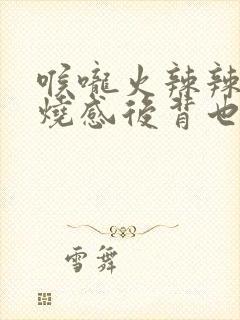 喉嚨火辣辣
燒感後背也
雪舞